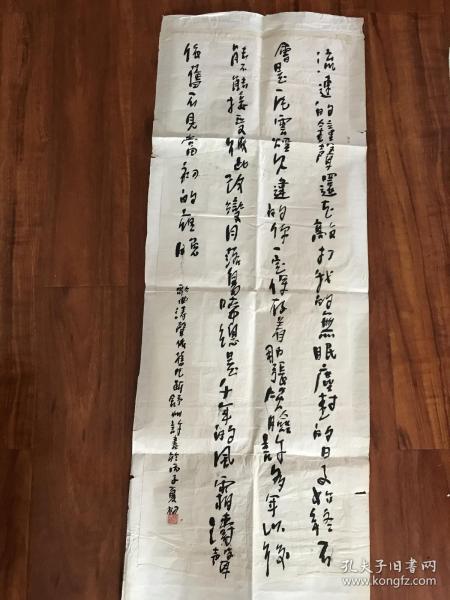 流連的鐘聲還在敲打我的無眠塵封的日子始終不
會是一片雲煙久違的你一定保存着那張笑臉許多年以後
能不能接受彼此改變月落烏啼總是千年的風霜濤聲
依舊不見當初的夜晚
歌曲濤聲依舊 書於丙子夏
孔夫子旧书网
www.kongfz.com